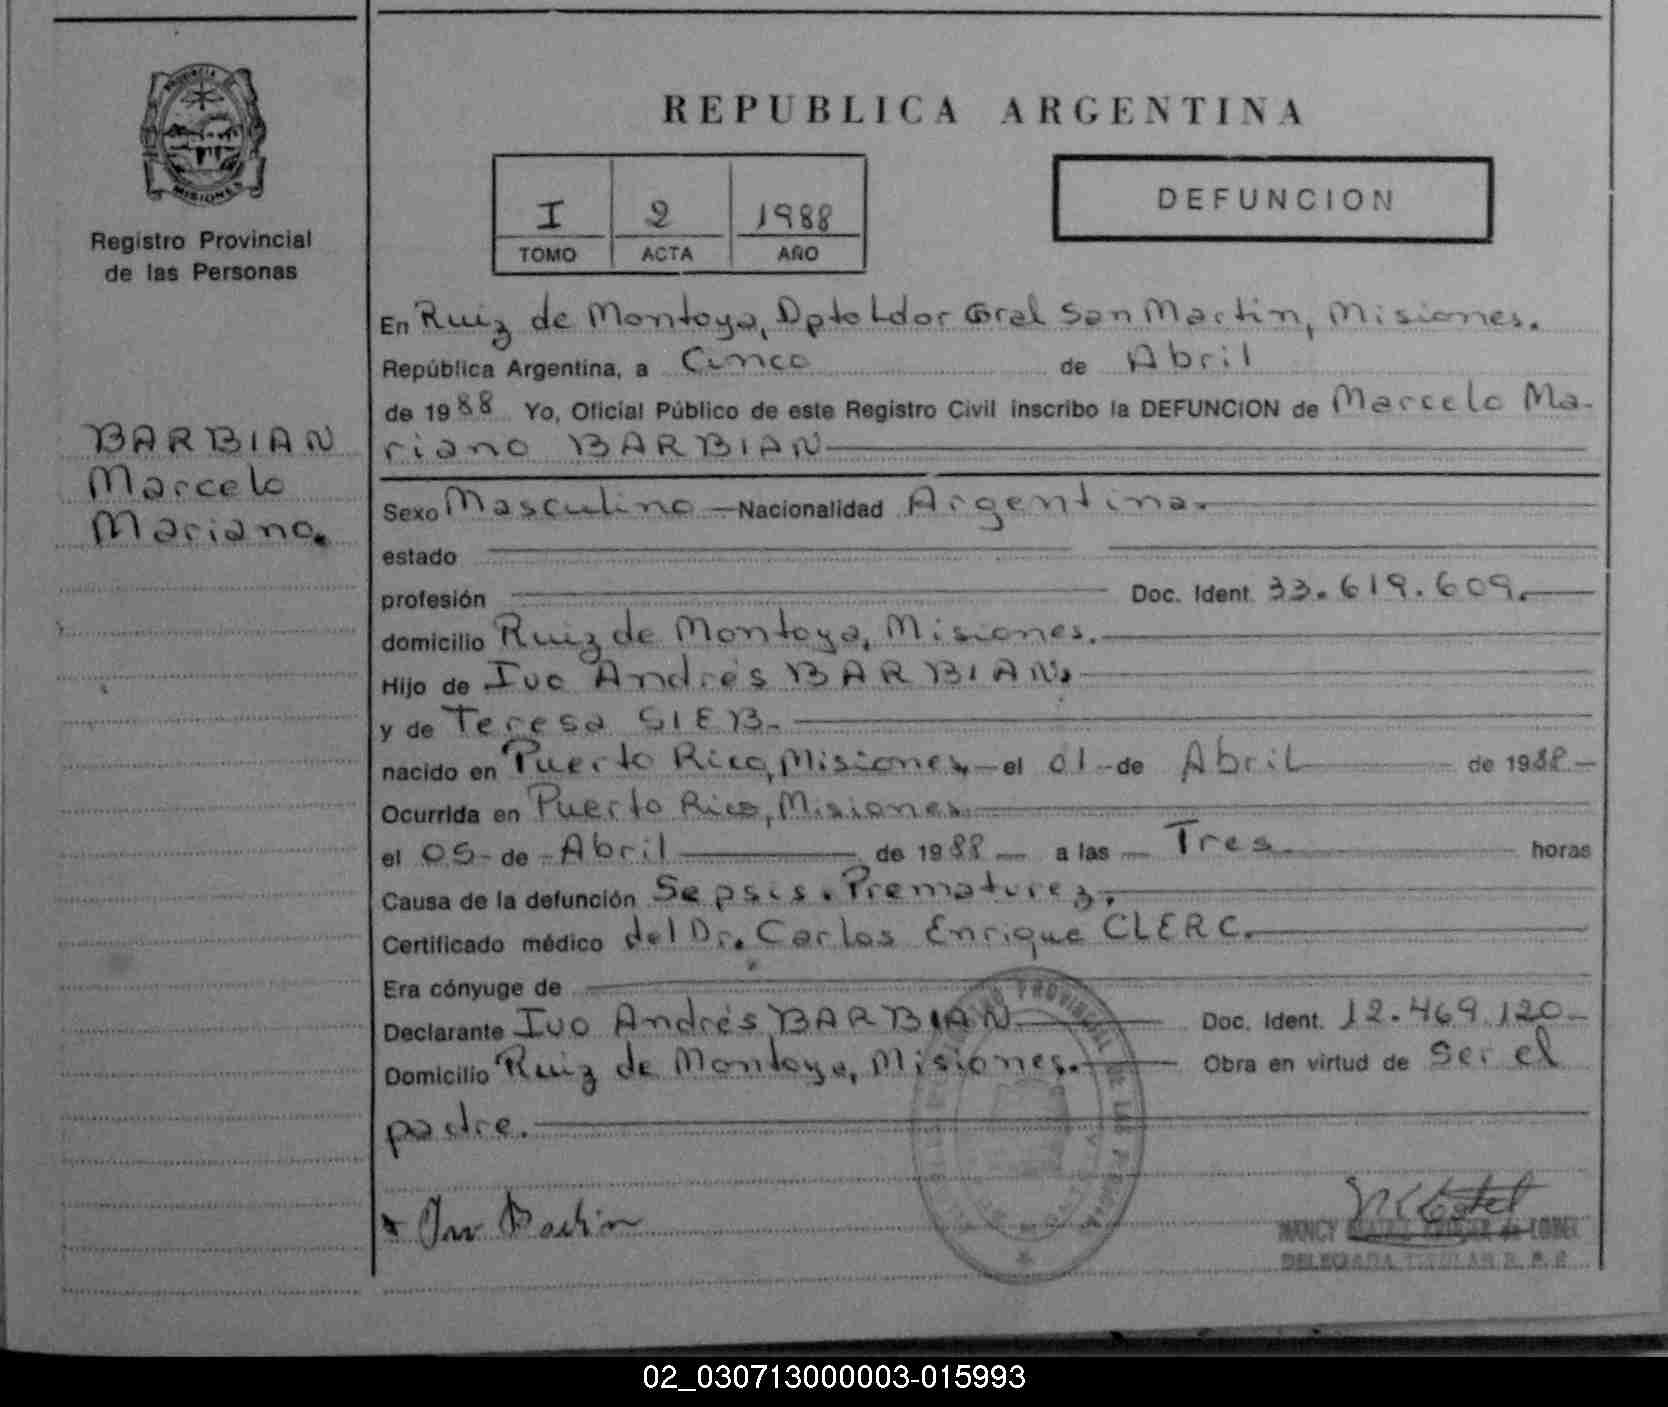 PROVINCIA DE
MISIONES
Registro Provincial
de las Personas
BARBIAN
Marcelo
Mariano.
REPUBLICA ARGENTINA
I 2 1988
TOMO ACTA AÑO
DEFUNCION
En Ruiz de Montoya, Dpto Ldor Gral San Martin, Misiones.
República Argentina, a Cinco de Abril
de 1988 Yo, Oficial Público de este Registro Civil inscribo la DEFUNCION de Marcelo Ma-
riano BARBIAN
Sexo Masculino - Nacionalidad Argentina.
estado
profesión Doc. Ident. 33.619.609.
domicilio Ruiz de Montoya, Misiones.
Hijo de Ivo Andrés BARBIAN,
y de Teresa SIEB.
nacido en Puerto Rico, Misiones, el 01 de Abril de 1988
Ocurrida en Puerto Rico, Misiones
el 05 de Abril de 1988 a las Tres horas
Causa de la defunción Sepsis. Prematurez.
Certificado médico del Dr. Carlos Enrique CLERC.
Era cónyuge de
Declarante Ivo Andrés BARBIAN Doc. Ident. 12.469.120
Domicilio Ruiz de Montoya, Misiones. Obra en virtud de Ser el
padre.
Ivo Barbian
NANCY de
DELEGADA TITULAR R. P. P.
02_030713000003-015993